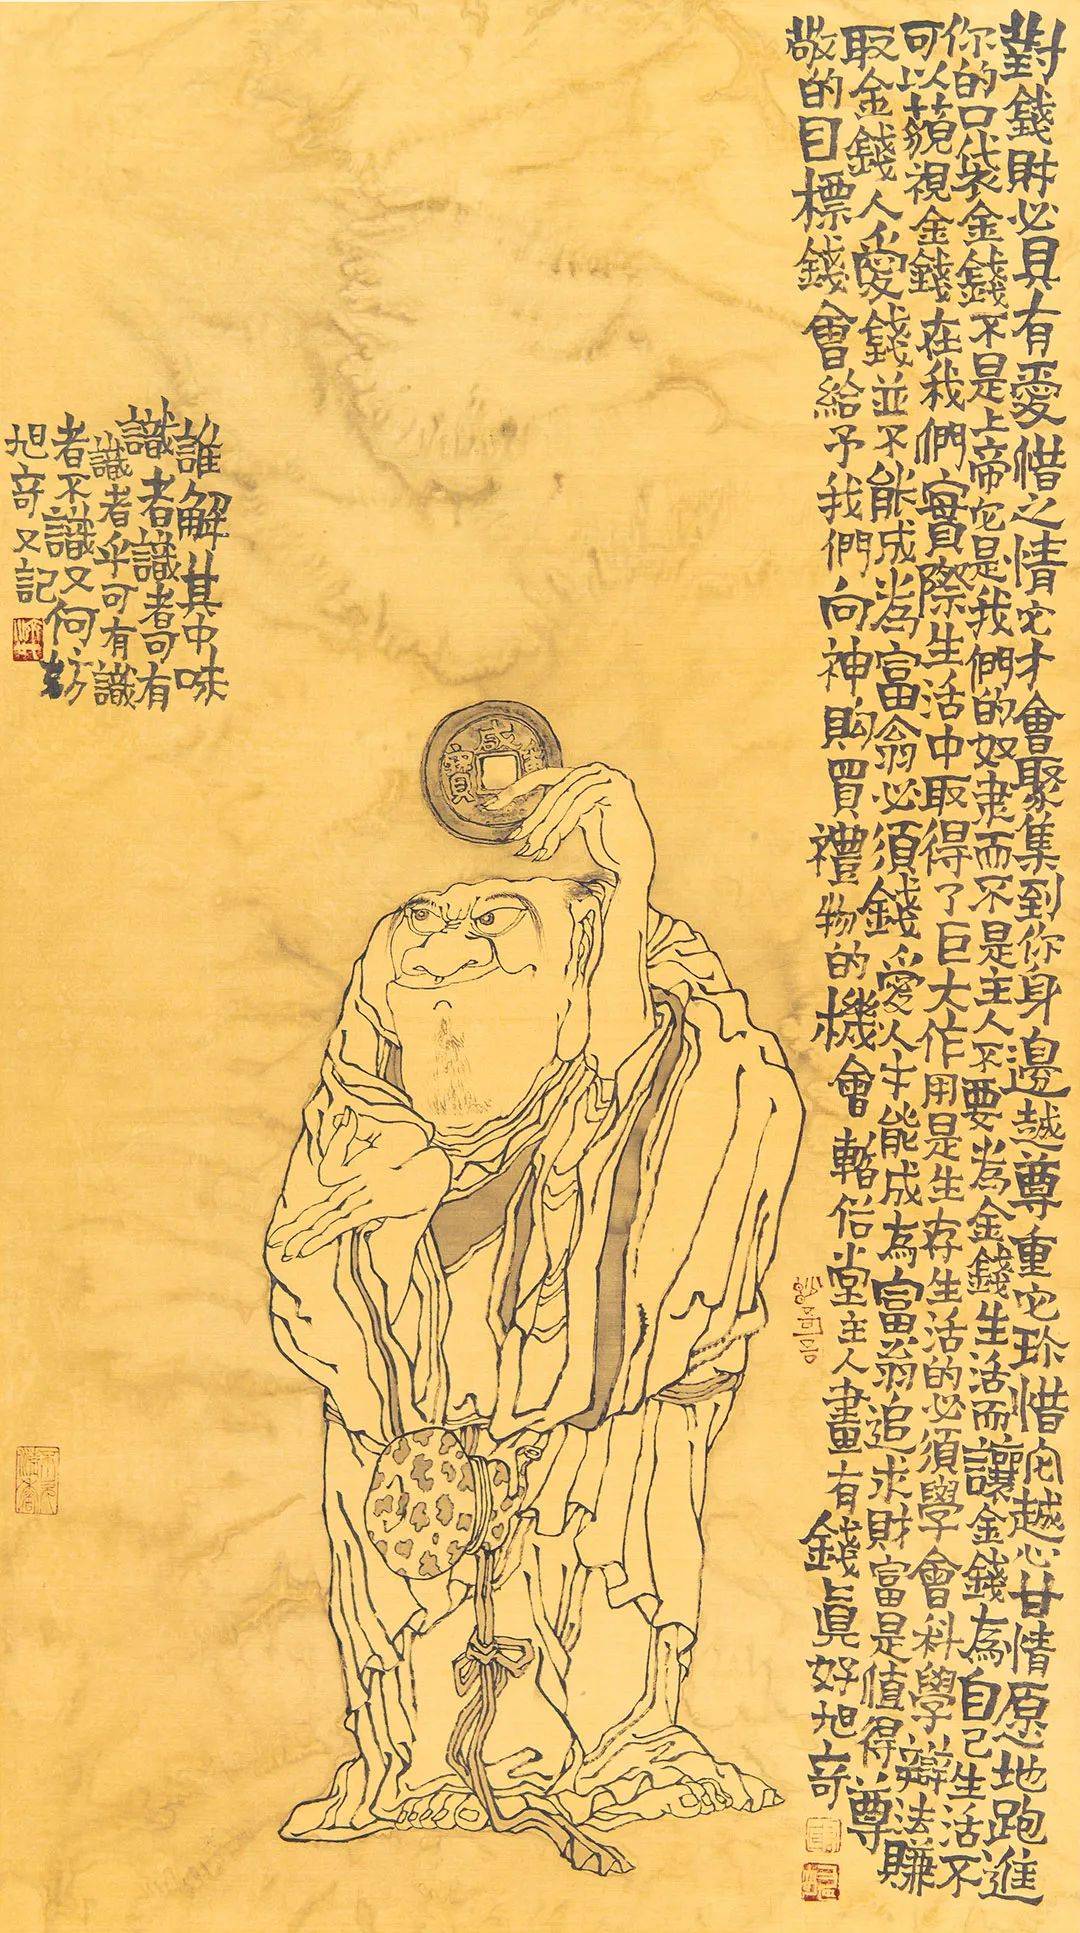 對錢財必具有愛惜之情它才會聚集到你身邊越尊重它珍惜它越心甘情愿地跑進
你的口袋金錢不是上帝它是我們的奴隶而不是主人不要為金錢生活而讓金錢為自己生活不
可以藐視金錢在我們實際生活中取得了巨大作用是生存生活的必須學會科學辯法賺
取金錢人愛錢並不能成為富翁必須錢愛人才能成為富翁追求財富是值得尊
敬的目標錢會給予我們向神購買禮物的機會暫俗堂主人畫有錢真好旭奇
誰解其中味
識者識者可有
識者乎可有識
者不識又何妨
旭奇又記
咸寶